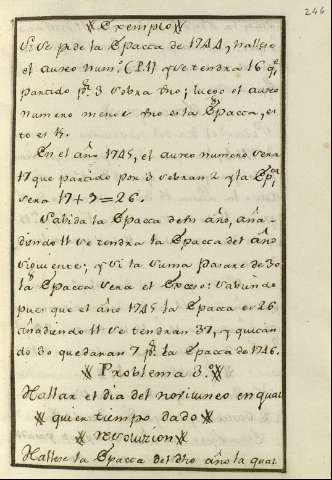 246
Exemplo
Si se pide la Epacca de 1744, hallese
el aureo num.º (P.1) y se tendra 16 q.e
partido p.r 3 sobra uno; luego el aureo
numero menos uno es la Epacca, es-
to es 15.
En el año 1745, el aureo numero sera
17 que partido por 3 sobran 2 y la Epa
sera 17 + 9 = 26.
Sabida la Epacca de un año, aña-
diendo 11 se tendra la Epacca del año
siguiente; y si la suma pasare de 30
la Epacca sera el Exceso: sabiendo
pues que el año 1745 la Epacca es 26
añadiendo 11 se tendran 37, y quitan
do 30 quedaran 7 p.r la Epacca de 1746.
Problema 3.º
Hallar el dia del noviluneo en qual
quier tiempo dado
revoluzion
Hallese la Epacca del dho año la qual